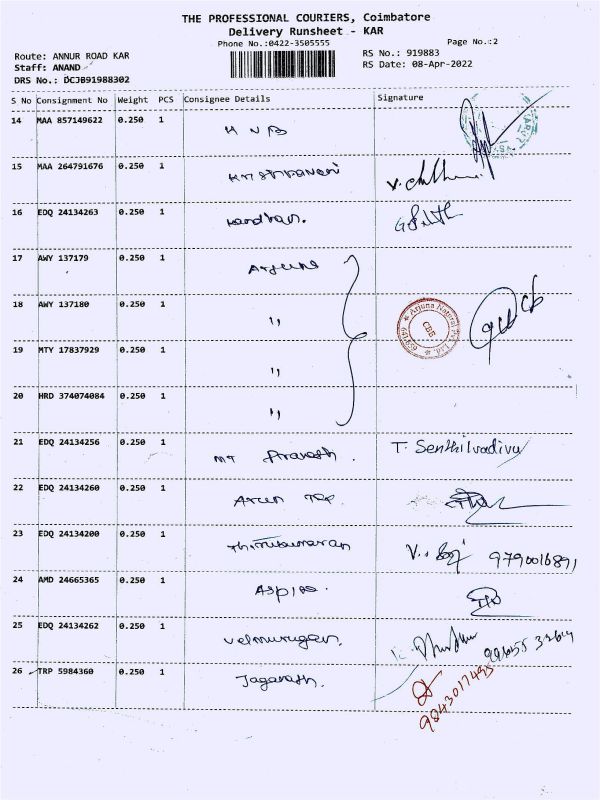 THE PROFESSIONAL COURIERS, Coimbatore
Delivery Runsheet - KAR
Phone No.:0422-3505555
Page No.:2
Route: ANNUR ROAD KAR
RS No.: 919883
Staff: ANAND
RS Date: 08-Apr-2022
DRS No.: DCJB91988302
S No Consignment No Weight PCS Consignee Details Signature
14 MAA 857149622 0.250 1
15 MAA 264791676 0.250 1 Krishnaveni
16 EDQ 24134263 0.250 1
17 AWY 137179 0.250 1 Arjuna
18 AWY 137180 0.250 1 ,,
Arjuna Natural Pvt. Ltd.
CBE
19 MTY 17837929 0.250 1 ,,
20 HRD 374074084 0.250 1 ,,
21 EDQ 24134256 0.250 1 MT T. Senthilvadivu
22 EDQ 24134260 0.250 1 Arun
23 EDQ 24134200 0.250 1 9790016891
24 AMD 24665365 0.250 1 Aspire.
25 EDQ 24134262 0.250 1 Velmurugan.
26 TRP 5984360 0.250 1 Jaganath.